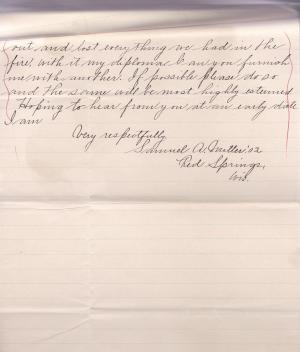 out and lost everything we had in the
fire, with it my diploma. Can you furnish
me with another. If possible please do so
and the same will be most highly esteemed.
Hoping to hear from you at an early date
I am
Very respectfully
Samuel A. Miller '02
Red Springs,
Wis.